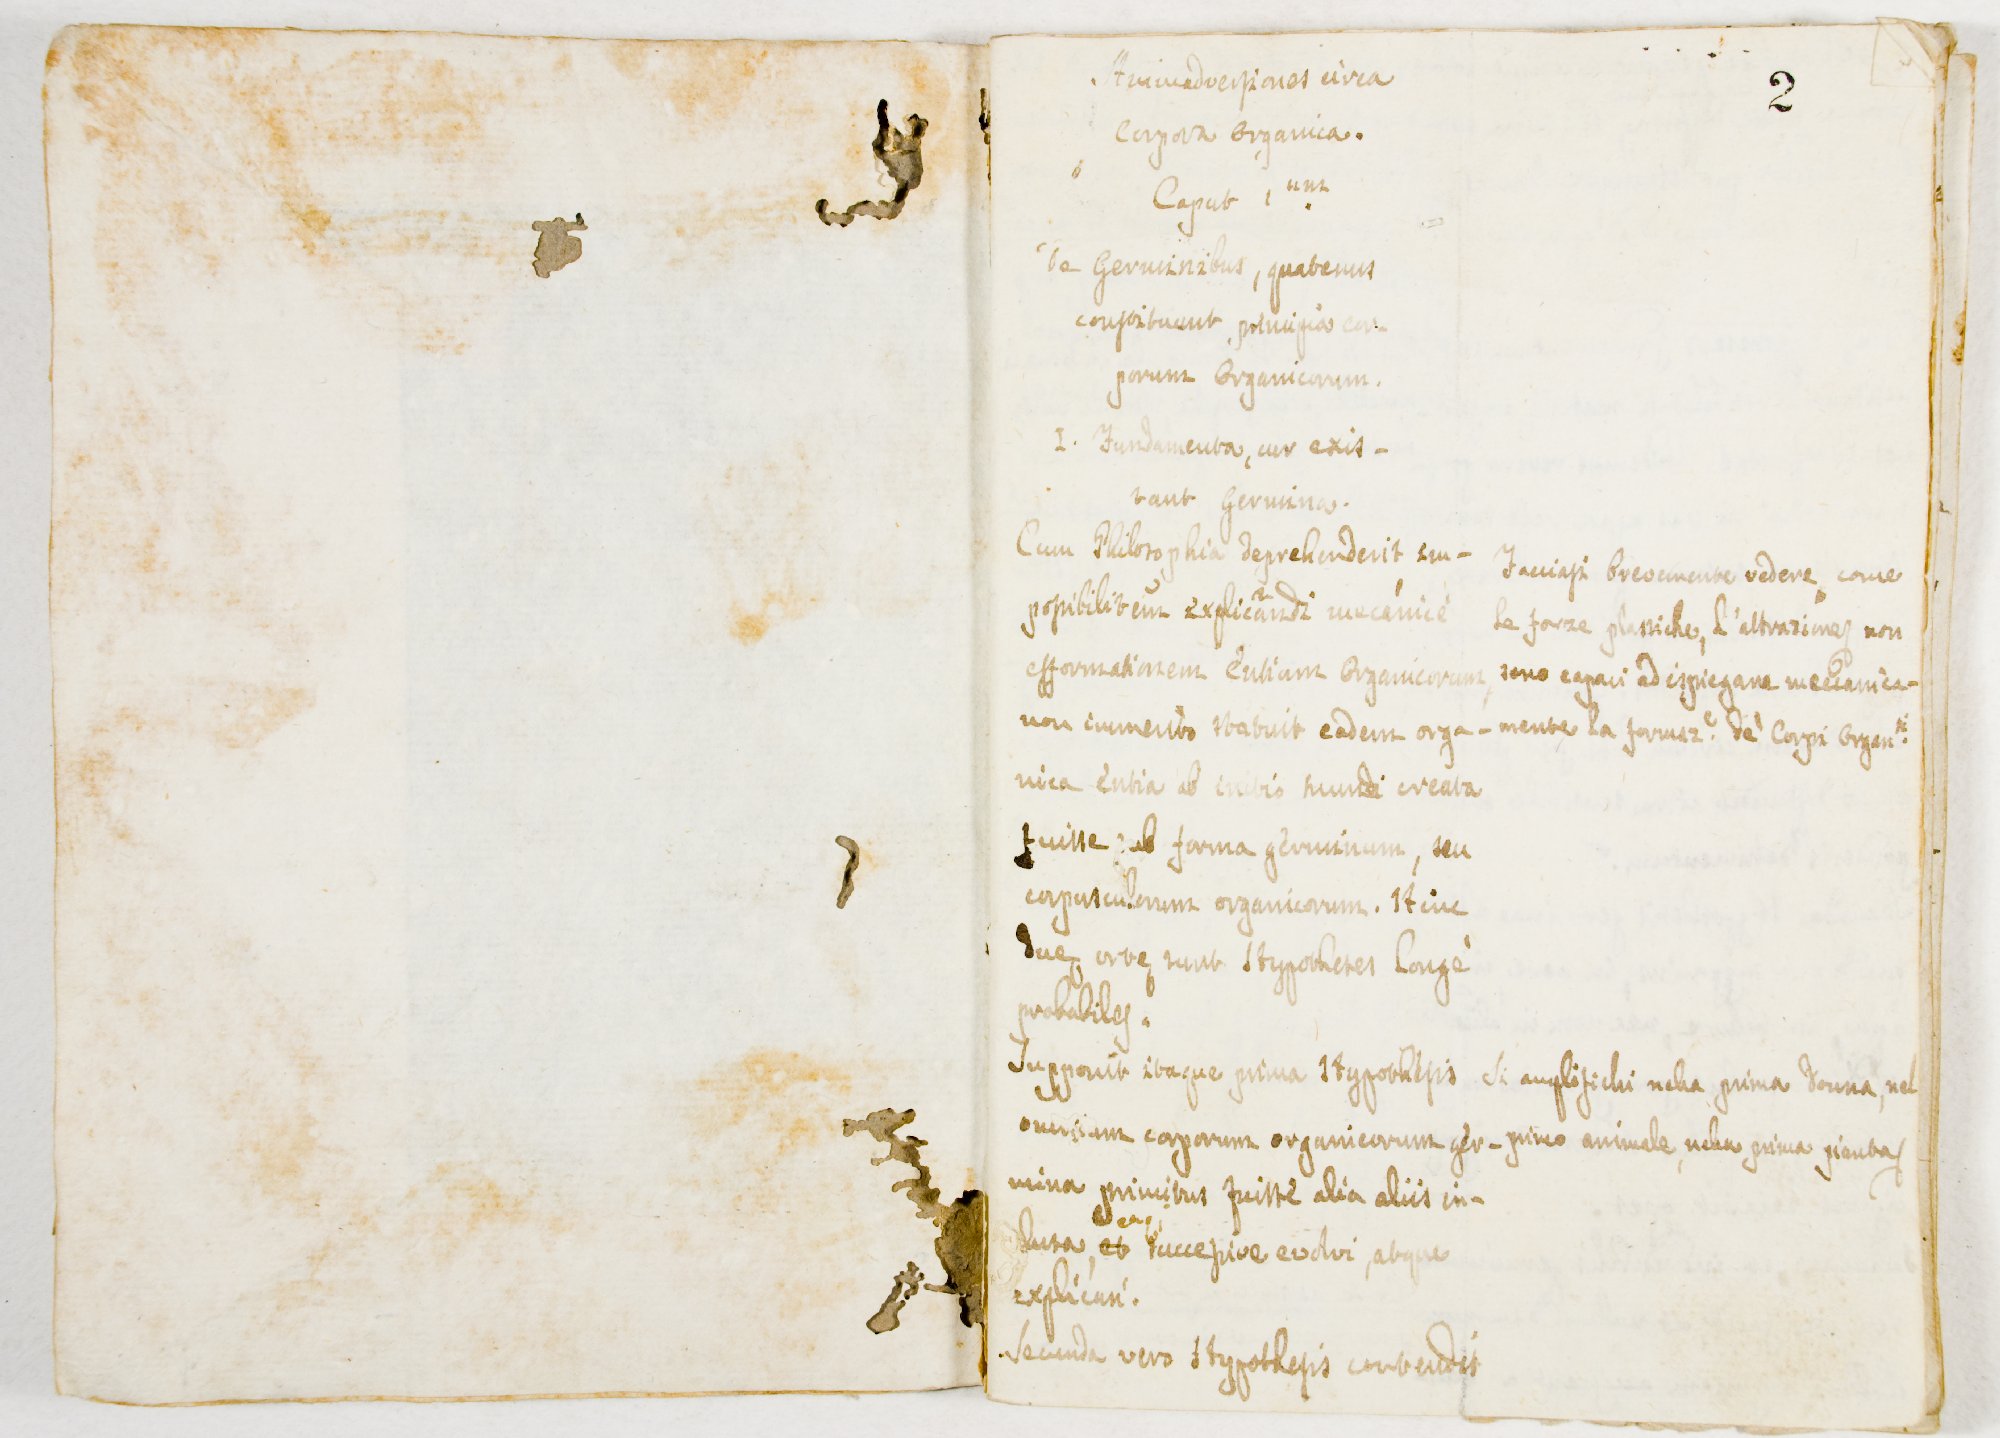 2
Animadversiones circa
Corpora Organica.
Caput 1.um
De Germinibus, quatenus
constituunt principia cor-
porum Organicorum.
I. Fundamenta, cur exis-
tant Germina.
Cum Philosophia deprehenderit im-
possibilitem explicandi mecanicè
efformationem Entium Organicorum,
non immerito statuit eadem orga-
nica Entia ab initio mundi creata
fuisse sub forma germinum, seu
corpusculorum organicorum. Hinc
duę ortę sunt Hypotheses longè
probabiles.
Supponit itaque prima Hypothesis
omnium corporum organicorum ger-
mina primitus fuisse alia aliis in-
clusa, et eaq; successive evolvi, atque
explicari.
Secunda vero Hypothesis contendit
Facciasi brevemente vedere, come
le forze plastiche, l'attrazione, non
sono capaci ad ispiegare meccanica-
mente la formaz.e de' Corpi Organ.ci
Si amplifichi nella prima donna, nel
primo animale, nella prima pianta